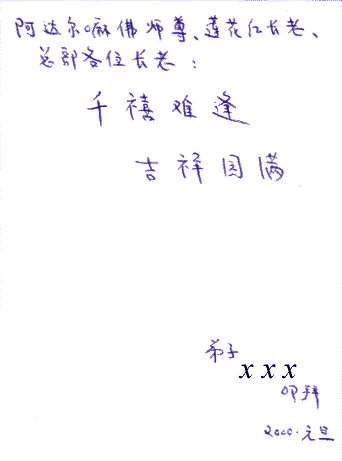 阿达尔嘛佛师尊、莲花仁长老、
总部各位长老：
千禧难逢
吉祥圆满
弟子
x x x
叩拜
2000.元旦